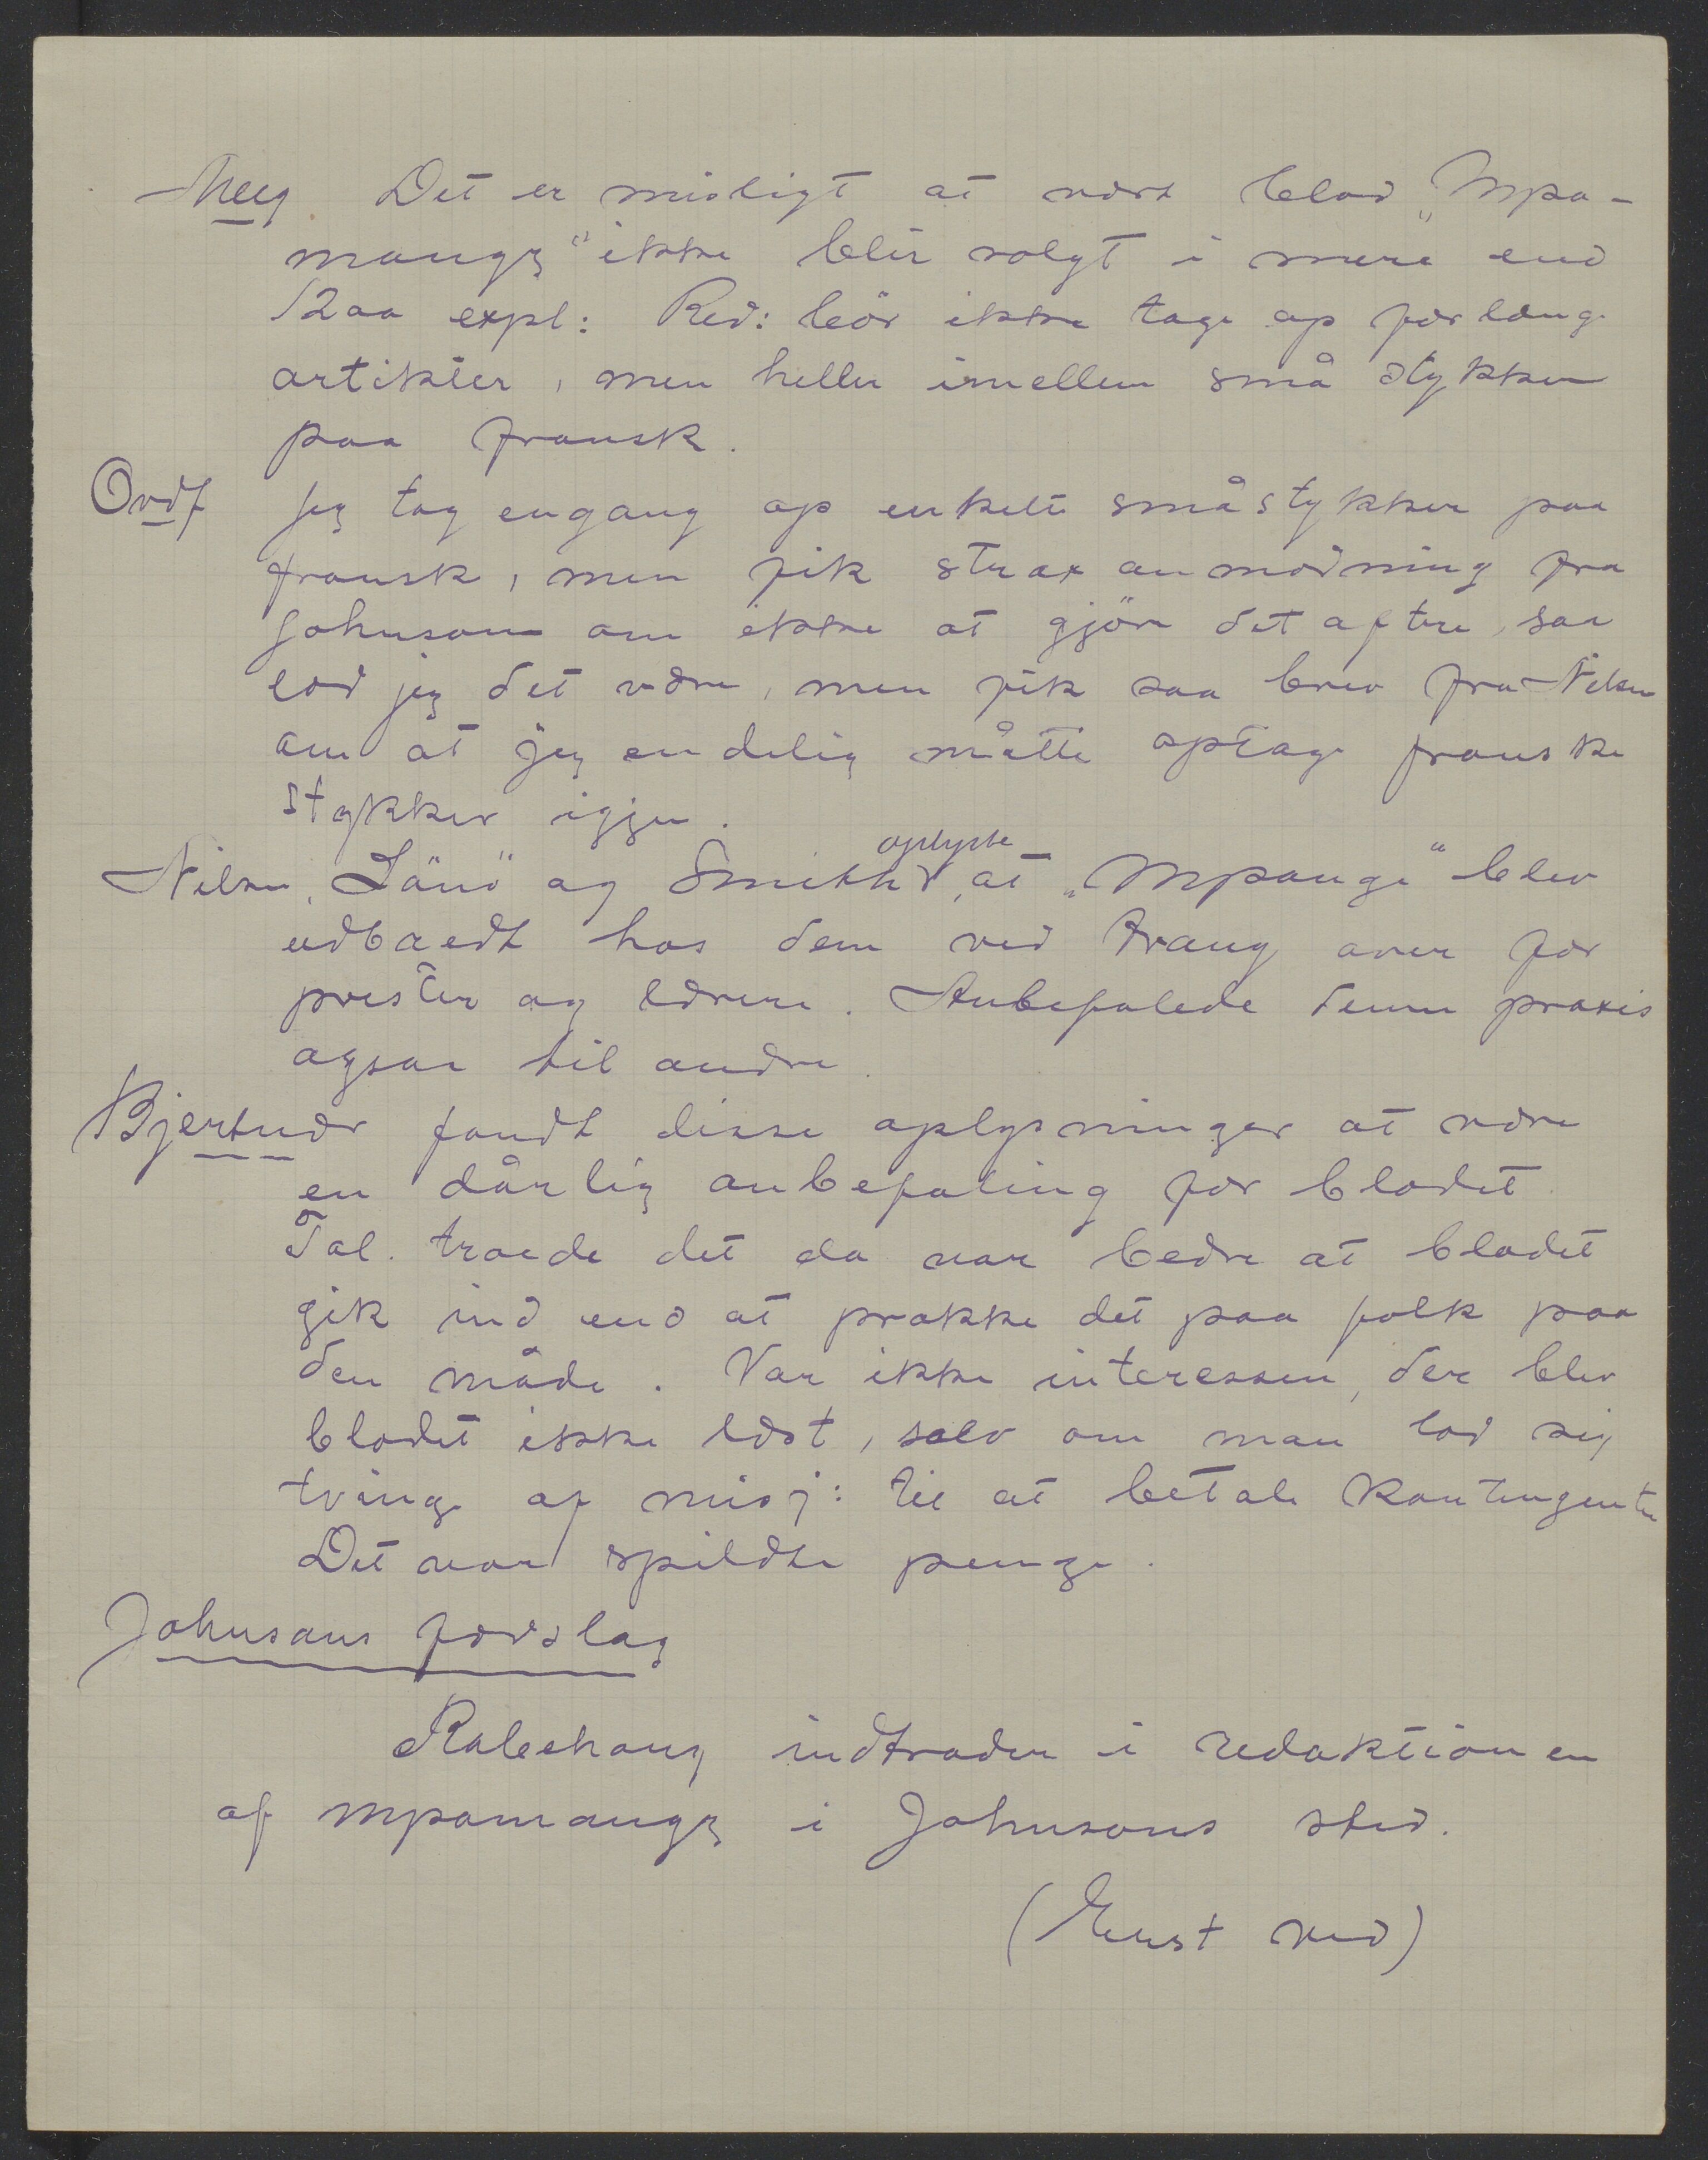 Meeg. Det er misligt at vort blad „Mpa-
mangy" ikke blir solgt i mere end
1200 expl: Red: bör ikke tage op for lange
artikler, men heller imellem små stykker
paa fransk.
Ordf Jeg tog engang op enkelte småstykker paa
fransk, men fik strax anmodning fra
Johnson om ikke at gjöre det aftere, saa
lod jeg det være, men fik saa brev fra Nilsen
om at jeg endelig måtte optage franske
stykker igjen.
Nilsen, Lönö og Smith oplyste, at „Mpangi" blev
udbredt hos dem ved tvang over for
prester og lærere. Anbefalede denne praxis
ogsaa til andre.
Bjertnær fandt disse oplysninger at være
en dårlig anbefaling for bladet.
Tal. troede det da var bedre at bladet
gik ind end at prakke det paa folk paa
den måde. Var ikke interessen der blev
bladet ikke læst, selv om man lod sig
tvinge af misj: til at betale kontingenten
Det var spildte penge.
Johnsons forslag
Rabehany indtræder i redaktionen
af Mpamangy i Johnsons sted.
(Enst. ved)